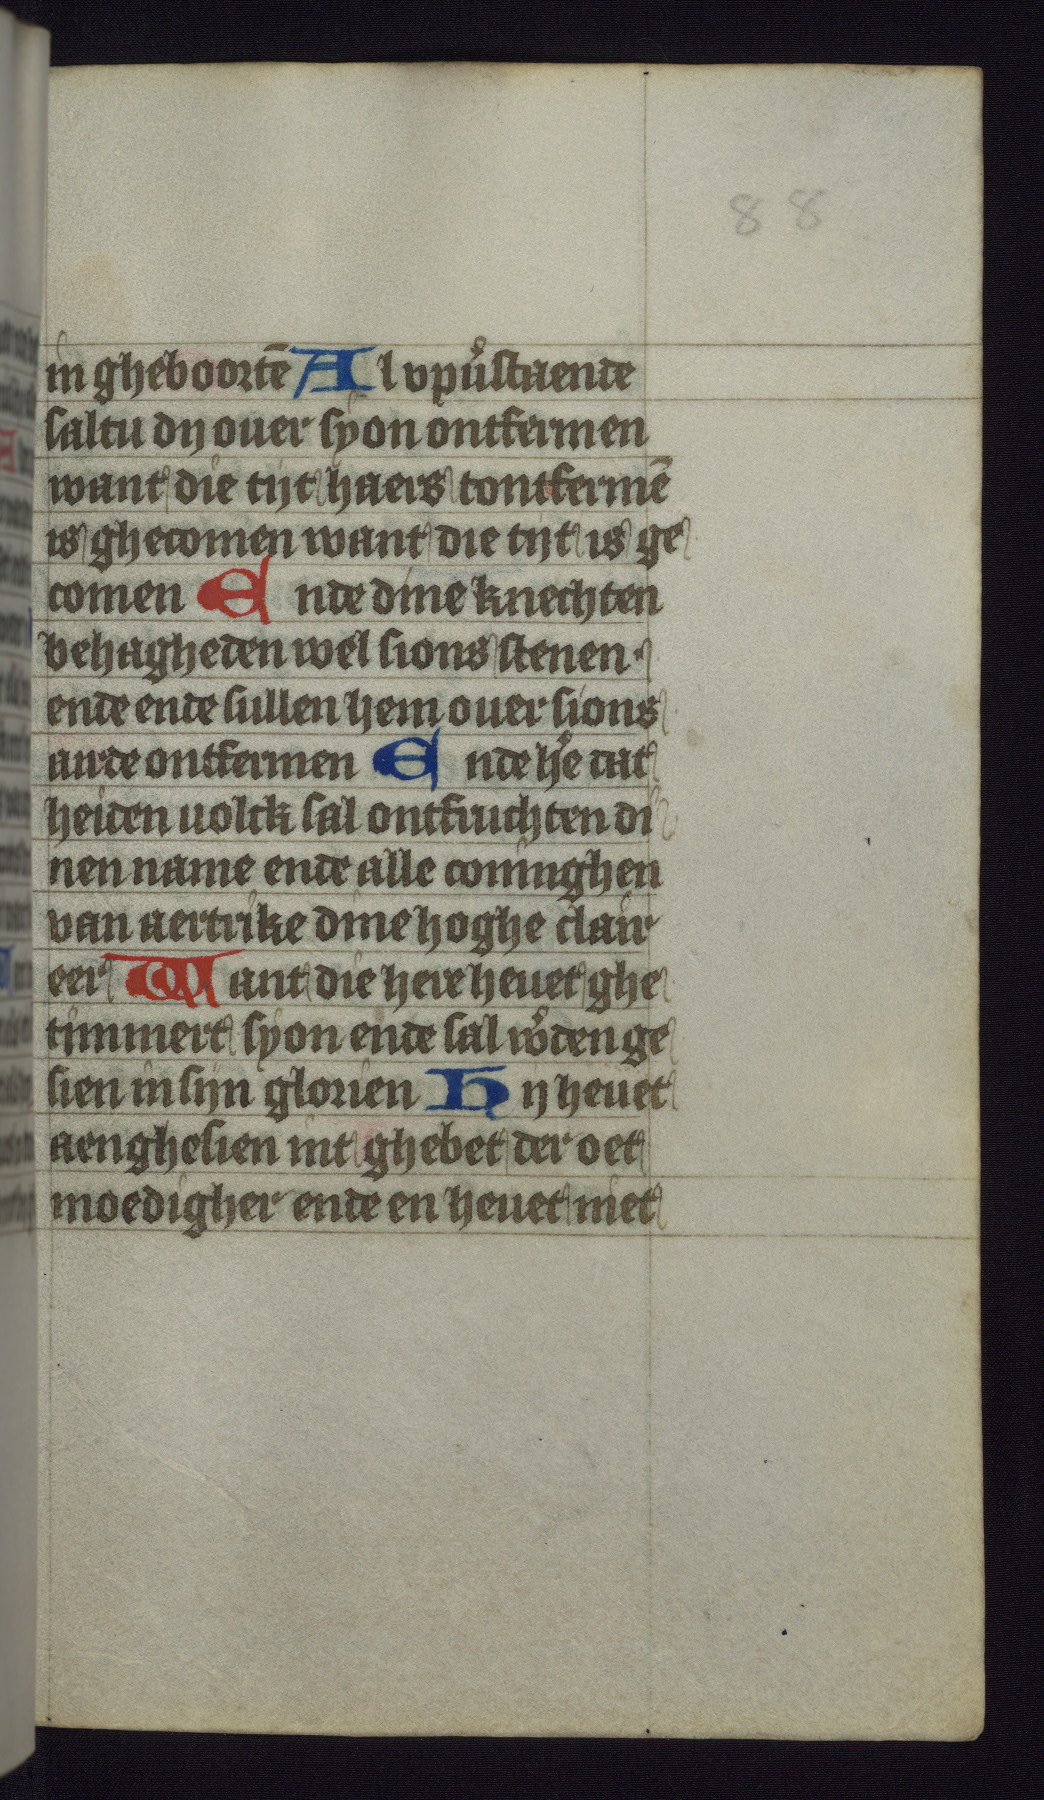 88
in gheboortē Al vpùstaende
saltu dy ouer syon ontfermen
want die tyt haers tontfermē
is ghecomen want die tyt is ge
comen Ende dine knechten
behagheden wel sions stenen·
ende ende sullen hem ouer sions
aerde ontfermen Ende he dat
heiden uolck sal ontfruchten di
nen name ende alle coninghen
van aertrike dine hoghe clair
eer Want die here heuet ghe
timmert syon ende sal wden ge
sien in syn glorien Hy heuet
aenghesien int ghebet der oet
moedigher ende en heuet niet